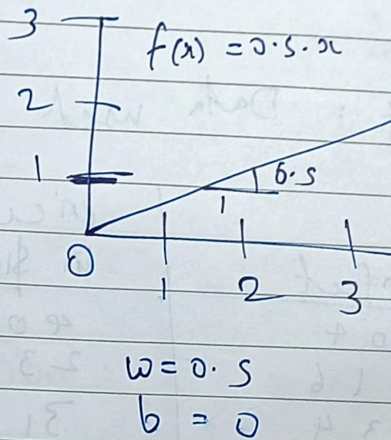 3
f(x) = 0.5.x
2
1
0.5
1
0
1 2 3
w = 0.5
b = 0